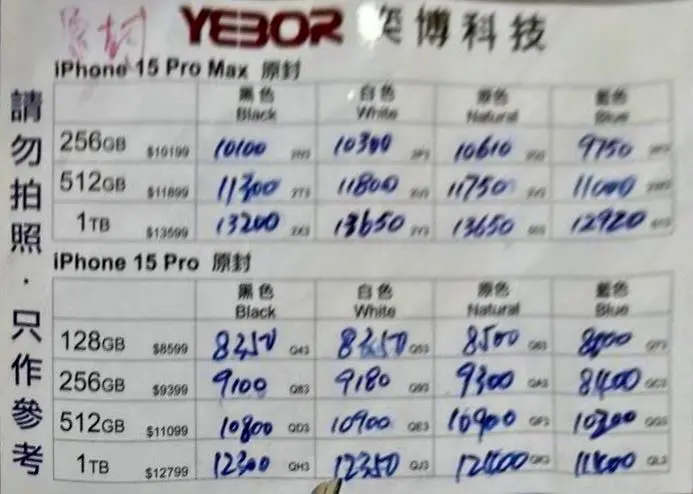 原封 YEBOR 奕博科技
請勿拍照．只作參考
iPhone 15 Pro Max 原封
黑色 白色 原色 藍色
Black White Natural Blue
256GB $10199 10100 10300 10610 9750
512GB $11899 11300 11800 11750 11000
1TB $13599 13200 13650 13650 12920
iPhone 15 Pro 原封
黑色 白色 原色 藍色
Black White Natural Blue
128GB $8599 8250 Q43 8250 Q53 8500
256GB $9399 9100 Q83 9180 Q93 9300 QA3 8400 QC3
512GB $11099 10800 QD3 10900 QE3 10900 QF3 QG3
1TB $12799 12300 QH3 12350 QJ3 12400 11400 QL3